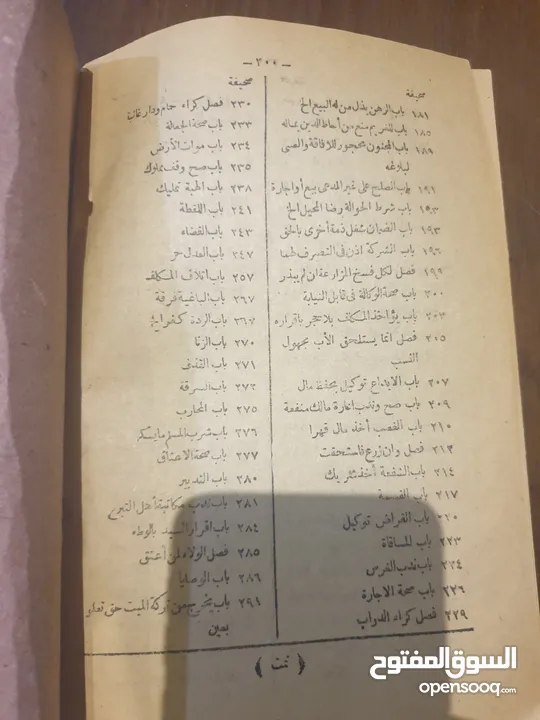 — ٣٠٠ —
صحيفة
١٨١ باب الرهن بذل من له البيع الخ
١٨٥ باب للغريم منع من أحاط الدين بماله
١٨٩ باب المجنون محجور للافاقة والصبى
لبلوغه
١٩١ باب الصلح على غير المدعى بيع أو اجارة
١٩٣ باب شرط الحوالة رضا المحيل الخ
١٩٣ باب الضمان شغل ذمة أخرى بالحق
١٩٦ باب الشركة اذن فى التصرف لهما
١٩٩ فصل لكل فسخ المزارعة ان لم يبذر
٢٠٠ باب صحة الوكالة فى قابل النيابة
٢٠٣ باب يؤاخذ المكلف بلا حجر باقراره
٢٠٥ فصل انما يستلحق الأب مجهول
النسب
٢٠٧ باب الايداع توكيل بحفظ مال
٢٠٩ باب صح وندب اعارة مالك منفعة
٢١٠ باب الغصب أخذ مال قهرا
٢١٣ فصل وان زرع فاستحقت
٢١٤ باب الشفعة أخذ شريك
٢١٧ باب القسمة
٢٢٠ باب القراض توكيل
٢٢٣ باب المساقاة
٢٢٤ باب ندب الغرس
٢٢٦ باب صحة الاجارة
٢٢٩ فصل كراء الدواب
صحيفة
٢٣٠ فصل كراء حمام ودار غائبة
٢٣٣ باب صحة الجعالة
٢٣٤ باب موات الأرض
٢٣٥ باب صح وقف مملوك
٢٣٨ باب الهبة تمليك
٢٤١ باب اللقطة
٢٤٣ باب القضاء
٢٤٧ باب العدل حر
٢٥٧ باب اتلاف المكلف
٢٦٧ باب الباغية فرقة
٢٦٧ باب الردة كفر
٢٧٠ باب الزنا
٢٧١ باب القذف
٢٧٢ باب السرقة
٢٧٥ باب المحارب
٢٧٦ باب شرب المسلم ما يسكر
٢٧٧ باب صحة الاعتاق
٢٨٠ باب التدبير
٢٨١ باب ندب مكاتبة أهل التبرع
٢٨٤ باب اقرار السيد بالوطء
٢٨٥ فصل الولاء لمن أعتق
٢٨٦ باب الوصايا
٢٩٤ باب يخرج من تركة الميت حق تعلق
بعين
( تمت )
السوق المفتوح
opensooq.com